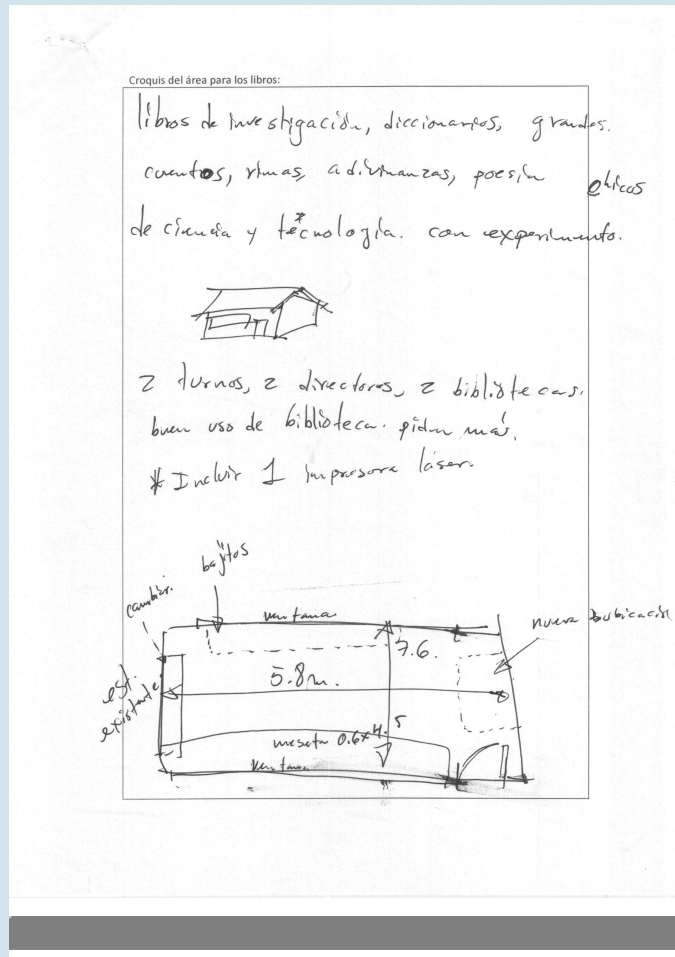 Croquis del área para los libros:
libros de investigación, diccionarios, grandes.
cuentos, rimas, adivinanzas, poesía chicos
de ciencia y tecnología. con experimento.
2 turnos, 2 directores, 2 bibliotecas.
buen uso de biblioteca. piden más.
* Incluir 1 impresora láser.
bajitos
cambiar.
ventana
nueva ubicación
7.6.
est.
existente
5.8m.
meseta 0.6x4.5
Ventana